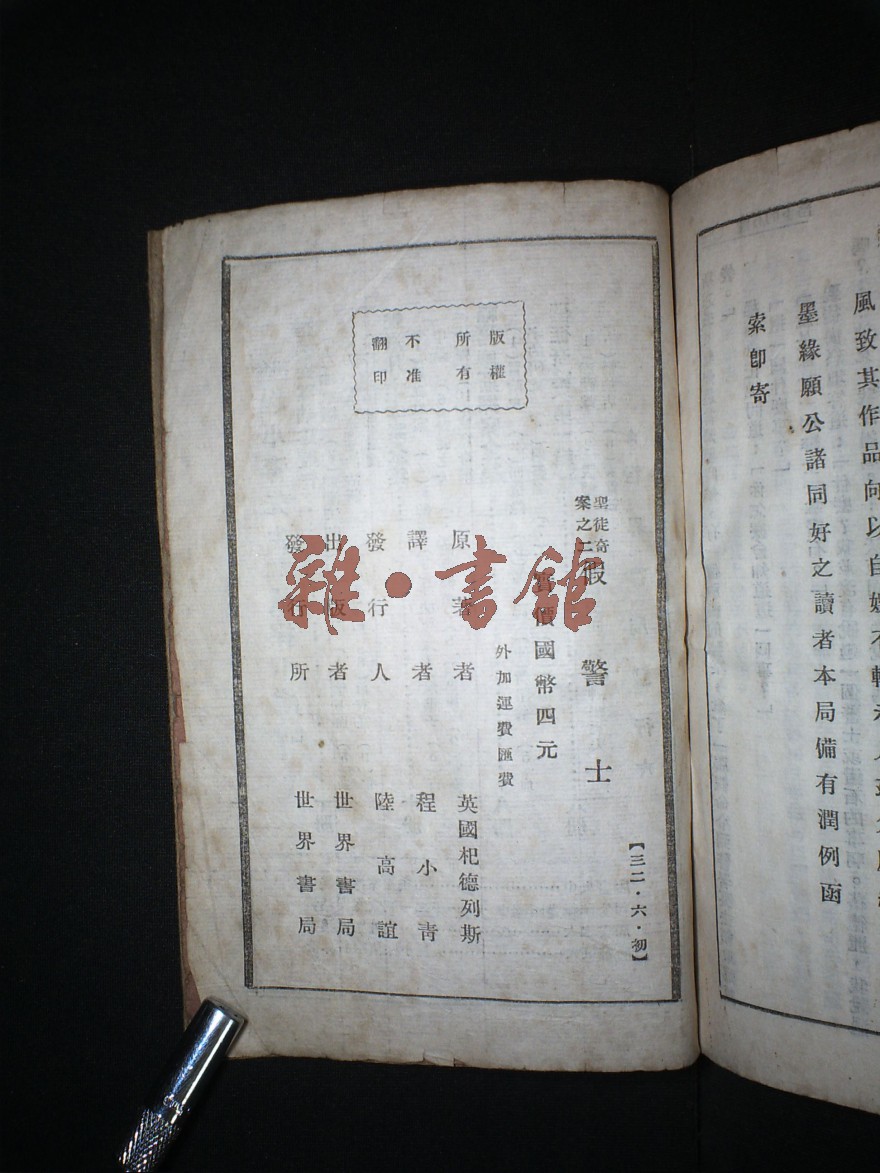 索卽寄
墨緣願公諸同好之讀者本局備有潤例函
風致其作品向以自娛不輕示人
版權
所有
不准
翻印
聖徒奇
案之二
假警士
【三二・六・初】
實價國幣四元
外加運費匯費
原著者 英國杞德列斯
譯者 程小青
發行人 陸高誼
出版者 世界書局
發行所 世界書局
雜・書館